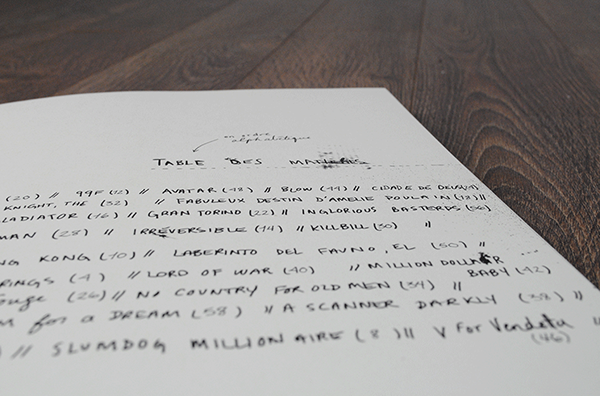 en ordre
alphabétique
TABLE DES MATIÈRES
(20) // 99F (12) // AVATAR (48) // BLOW (44) // CIDADE DE DEUS
KNIGHT, THE (32) // FABULEUX DESTIN D'AMELIE POULAIN (18) //
LADIATOR (16) // GRAN TORINO (22) // INGLORIOUS BASTERDS (56)
MAN (28) // IRREVERSIBLE (14) // KILLBILL (30) //
NG KONG (10) // LABERINTO DEL FAUNO, EL (50) //
RINGS (4) // LORD OF WAR (40) // MILLION DOLLAR
BABY (42)
ouge (26) // NO COUNTRY FOR OLD MEN (34) //
M FOR A DREAM (58) // A SCANNER DARKLY (38) //
) // SLUMDOG MILLIONAIRE (8) // V For Vendetta
(46)